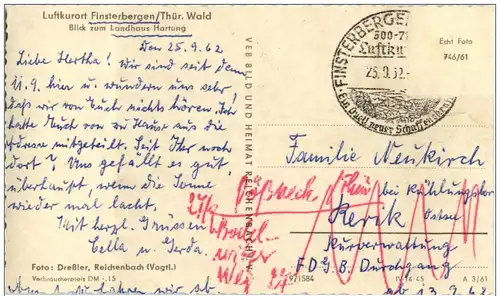 Luftkurort Finsterbergen/Thür. Wald
Blick zum Landhaus Hartung
Den 25.9.62
Liebe Hertha! Wir sind seit dem
11.9. hier u. wundern uns sehr,
daß wir von Euch nichts hören. Ich
hatte Euch von zu Haus aus die
Adresse mitgeteilt. Seit Ihr noch
dort? Uns gefällt es gut,
überhaupt, wenn die Sonne
wieder mal lacht.
Mit herzl. Grüssen
Cella u. Gerda.
Foto: Dreßler, Reichenbach (Vogtl.)
Verbraucherpreis DM -.15
VEB BILD UND HEIMAT REICHENBACH i. V.
FINSTERBERGEN
500-
Luftku
25.9.62.-
neuer Schaffenskraft
Echt Foto
746/61
Familie Neukirch
Pößneck
bei Kühlungsborn
Kerik Ostsee
Kurverwaltung
FDGB. Durchgang
ab 13.9.62
9/1584
A 3/61